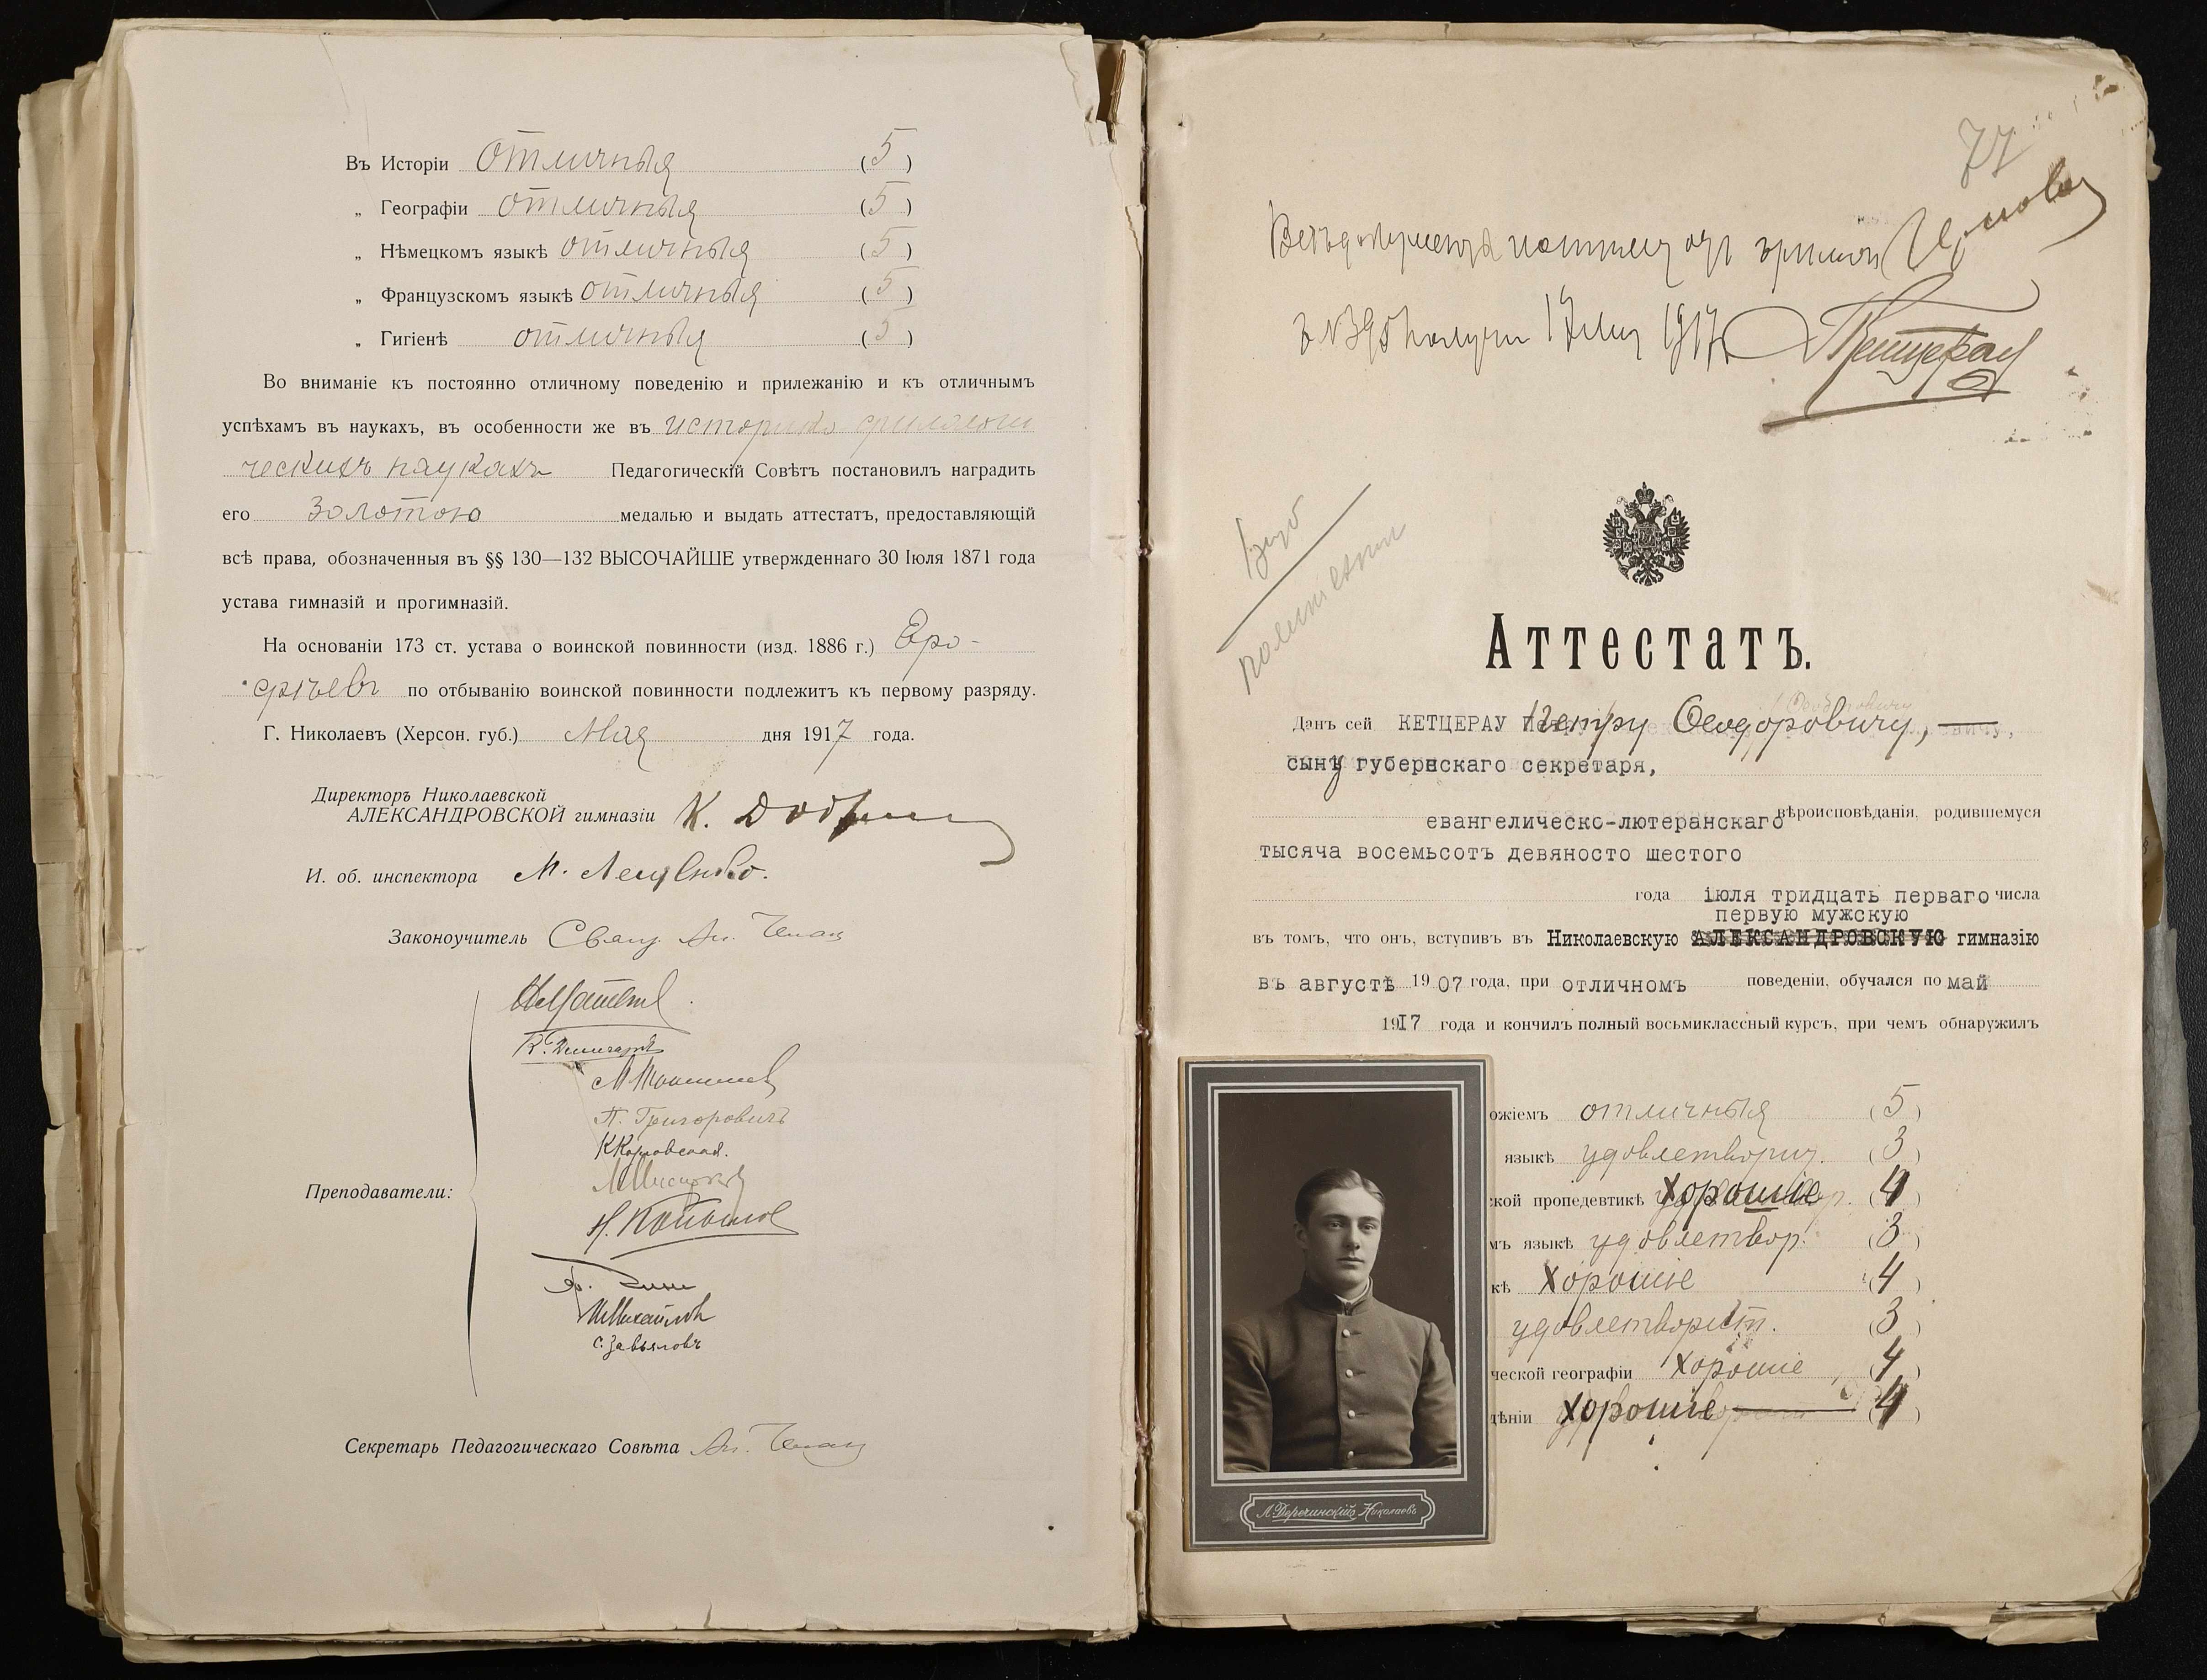 Въ Исторіи отличныя (5)
„ Географіи отличныя (5)
„ Нѣмецкомъ языкѣ отличныя (5)
„ Французскомъ языкѣ отличныя (5)
„ Гигіенѣ отличныя (5)
Во вниманіе къ постоянно отличному поведенію и прилежанію и къ отличнымъ
успѣхамъ въ наукахъ, въ особенности же въ историко филологи
ческихъ наукахъ Педагогическій Совѣтъ постановилъ наградить
его Золотою медалью и выдать аттестатъ, предоставляющій
всѣ права, обозначенныя въ §§ 130—132 ВЫСОЧАЙШЕ утвержденнаго 30 Іюля 1871 года
устава гимназій и прогимназій.
На основаніи 173 ст. устава о воинской повинности (изд. 1886 г.) Еро-
фѣевъ по отбыванію воинской повинности подлежитъ къ первому разряду.
Г. Николаевъ (Херсон. губ.) Мая дня 1917 года.
Директоръ Николаевской
АЛЕКСАНДРОВСКОЙ гимназіи К.
И. об. инспектора М. Лещенко.
Законоучитель Свящ. Ал.
Преподаватели:
П. Григоровичъ
Н.
Михайловъ
С. Завьяловъ
Секретарь Педагогическаго Совѣта Ал.
77
1917
Кетцерау
Аттестатъ.
Данъ сей КЕТЦЕРАУ Петру Ѳеодоровичу,
сыну губернскаго секретаря,
евангелическо-лютеранскаго вѣроисповѣданія, родившемуся
тысяча восемьсотъ девяносто шестого
года іюля тридцать перваго числа
первую мужскую
въ томъ, что онъ, вступивъ въ Николаевскую АЛЕКСАНДРОВСКУЮ гимназію
въ августѣ 1907 года, при отличномъ поведеніи, обучался по май
1917 года и кончилъ полный восьмиклассный курсъ, при чемъ обнаружилъ
ожіемъ отличныя (5)
языкѣ удовлетворит. (3)
ской пропедевтикѣ хорошіе (4)
мъ языкѣ удовлетвор. (3)
кѣ хорошіе (4)
удовлетворит. (3)
ческой географіи хорошіе (4)
дѣніи хорошіе (4)
Николаевъ